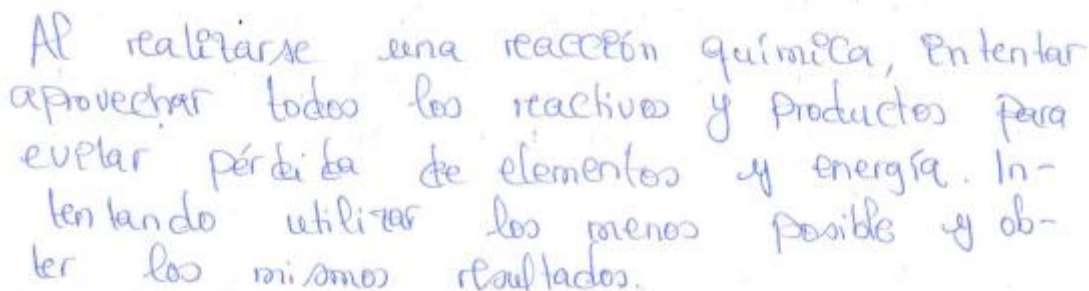 Al realizarse una reacción química, intentar
aprovechar todos los reactivos y productos para
evitar pérdida de elementos y energía. In-
tentando utilizar los menos posible y ob-
ter los mismos resultados.